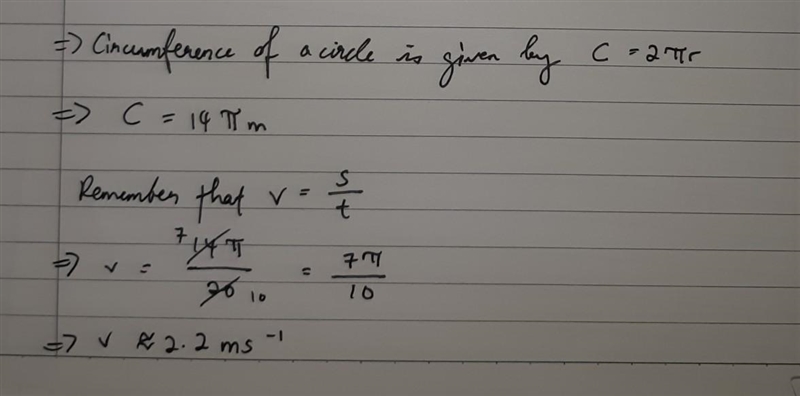 => Circumference of a circle is given by C = 2πr
=> C = 14πm
Remember that v = s/t
=> v = 7 14π / 20 10 = 7π/10
=> v ≈ 2.2 ms⁻¹